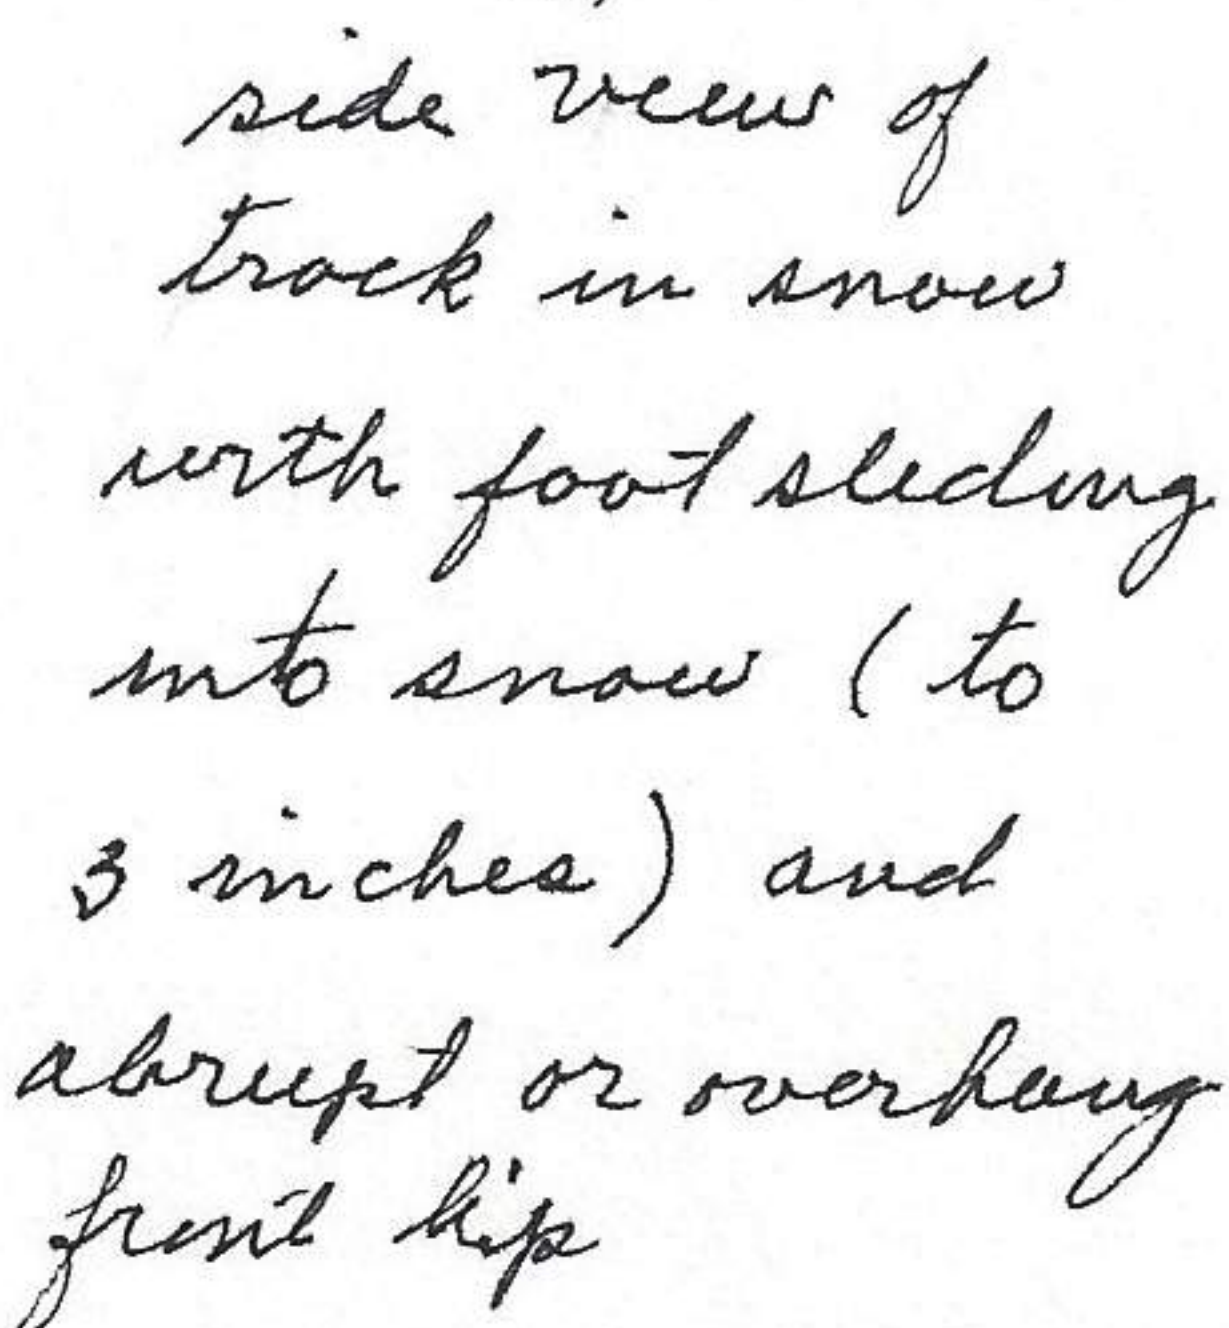 side view of
track in snow
with foot sliding
into snow (to
3 inches) and
abrupt or overhang
front lip